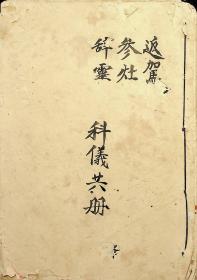 返駕
参灶
辞靈
科儀共册